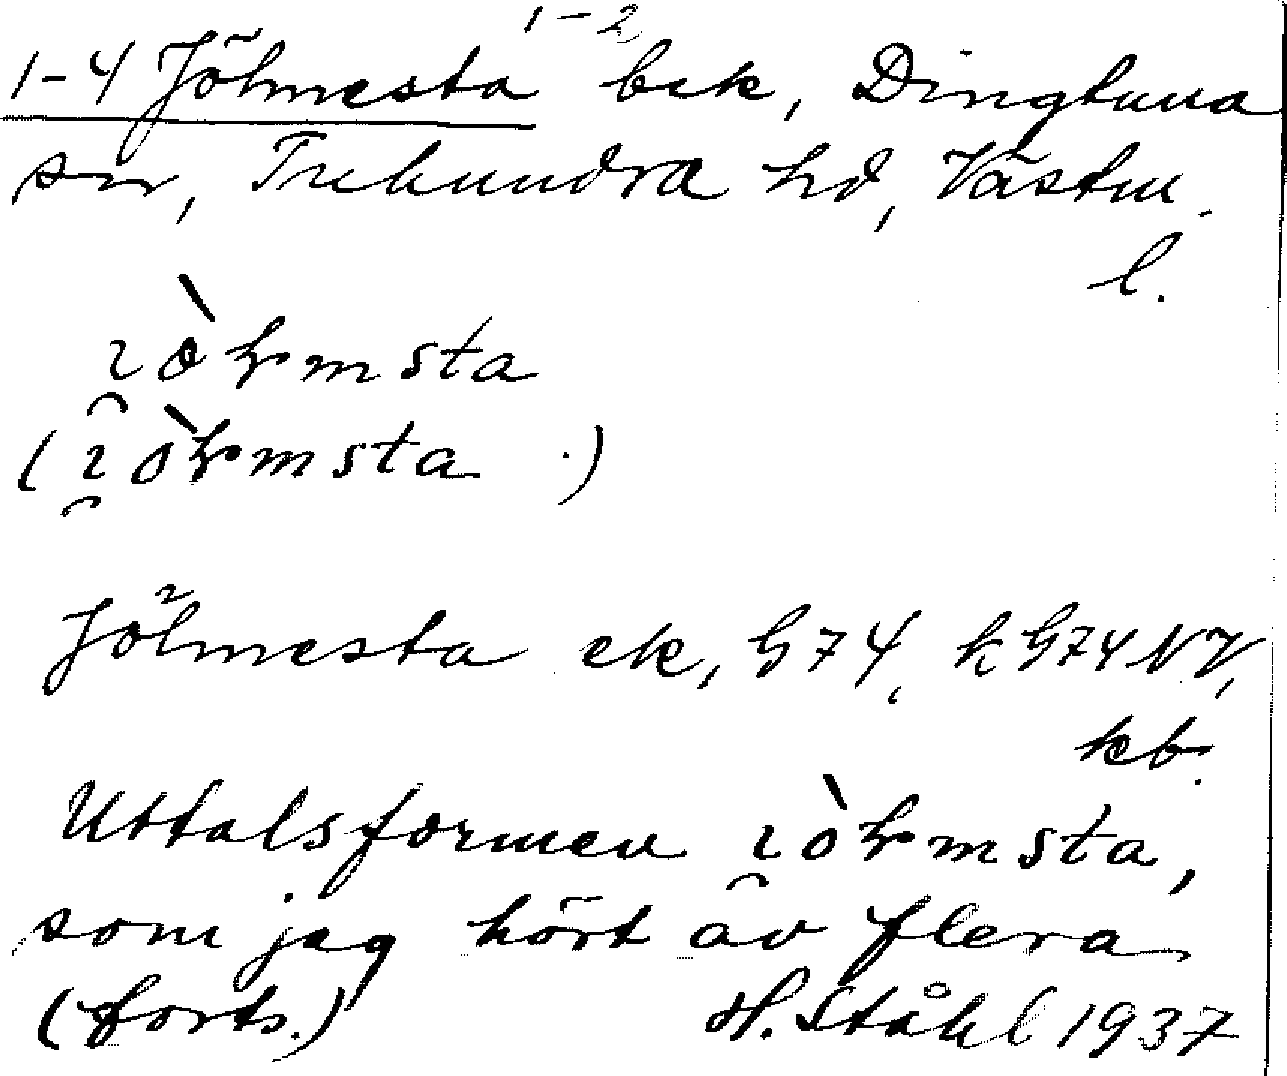 1-2
1-4 Jölmesta bek, Dingtuna
sn, Tuhundra hd, Västm.
l.
ı̯òɫmsta
(ı̯òɫmsta .)
Jölmesta ek, G74, k G74 NV,
kb.
Uttalsformen ı̯òɫmsta,
som jag hört av flera
(forts.) H. Ståhl 1937